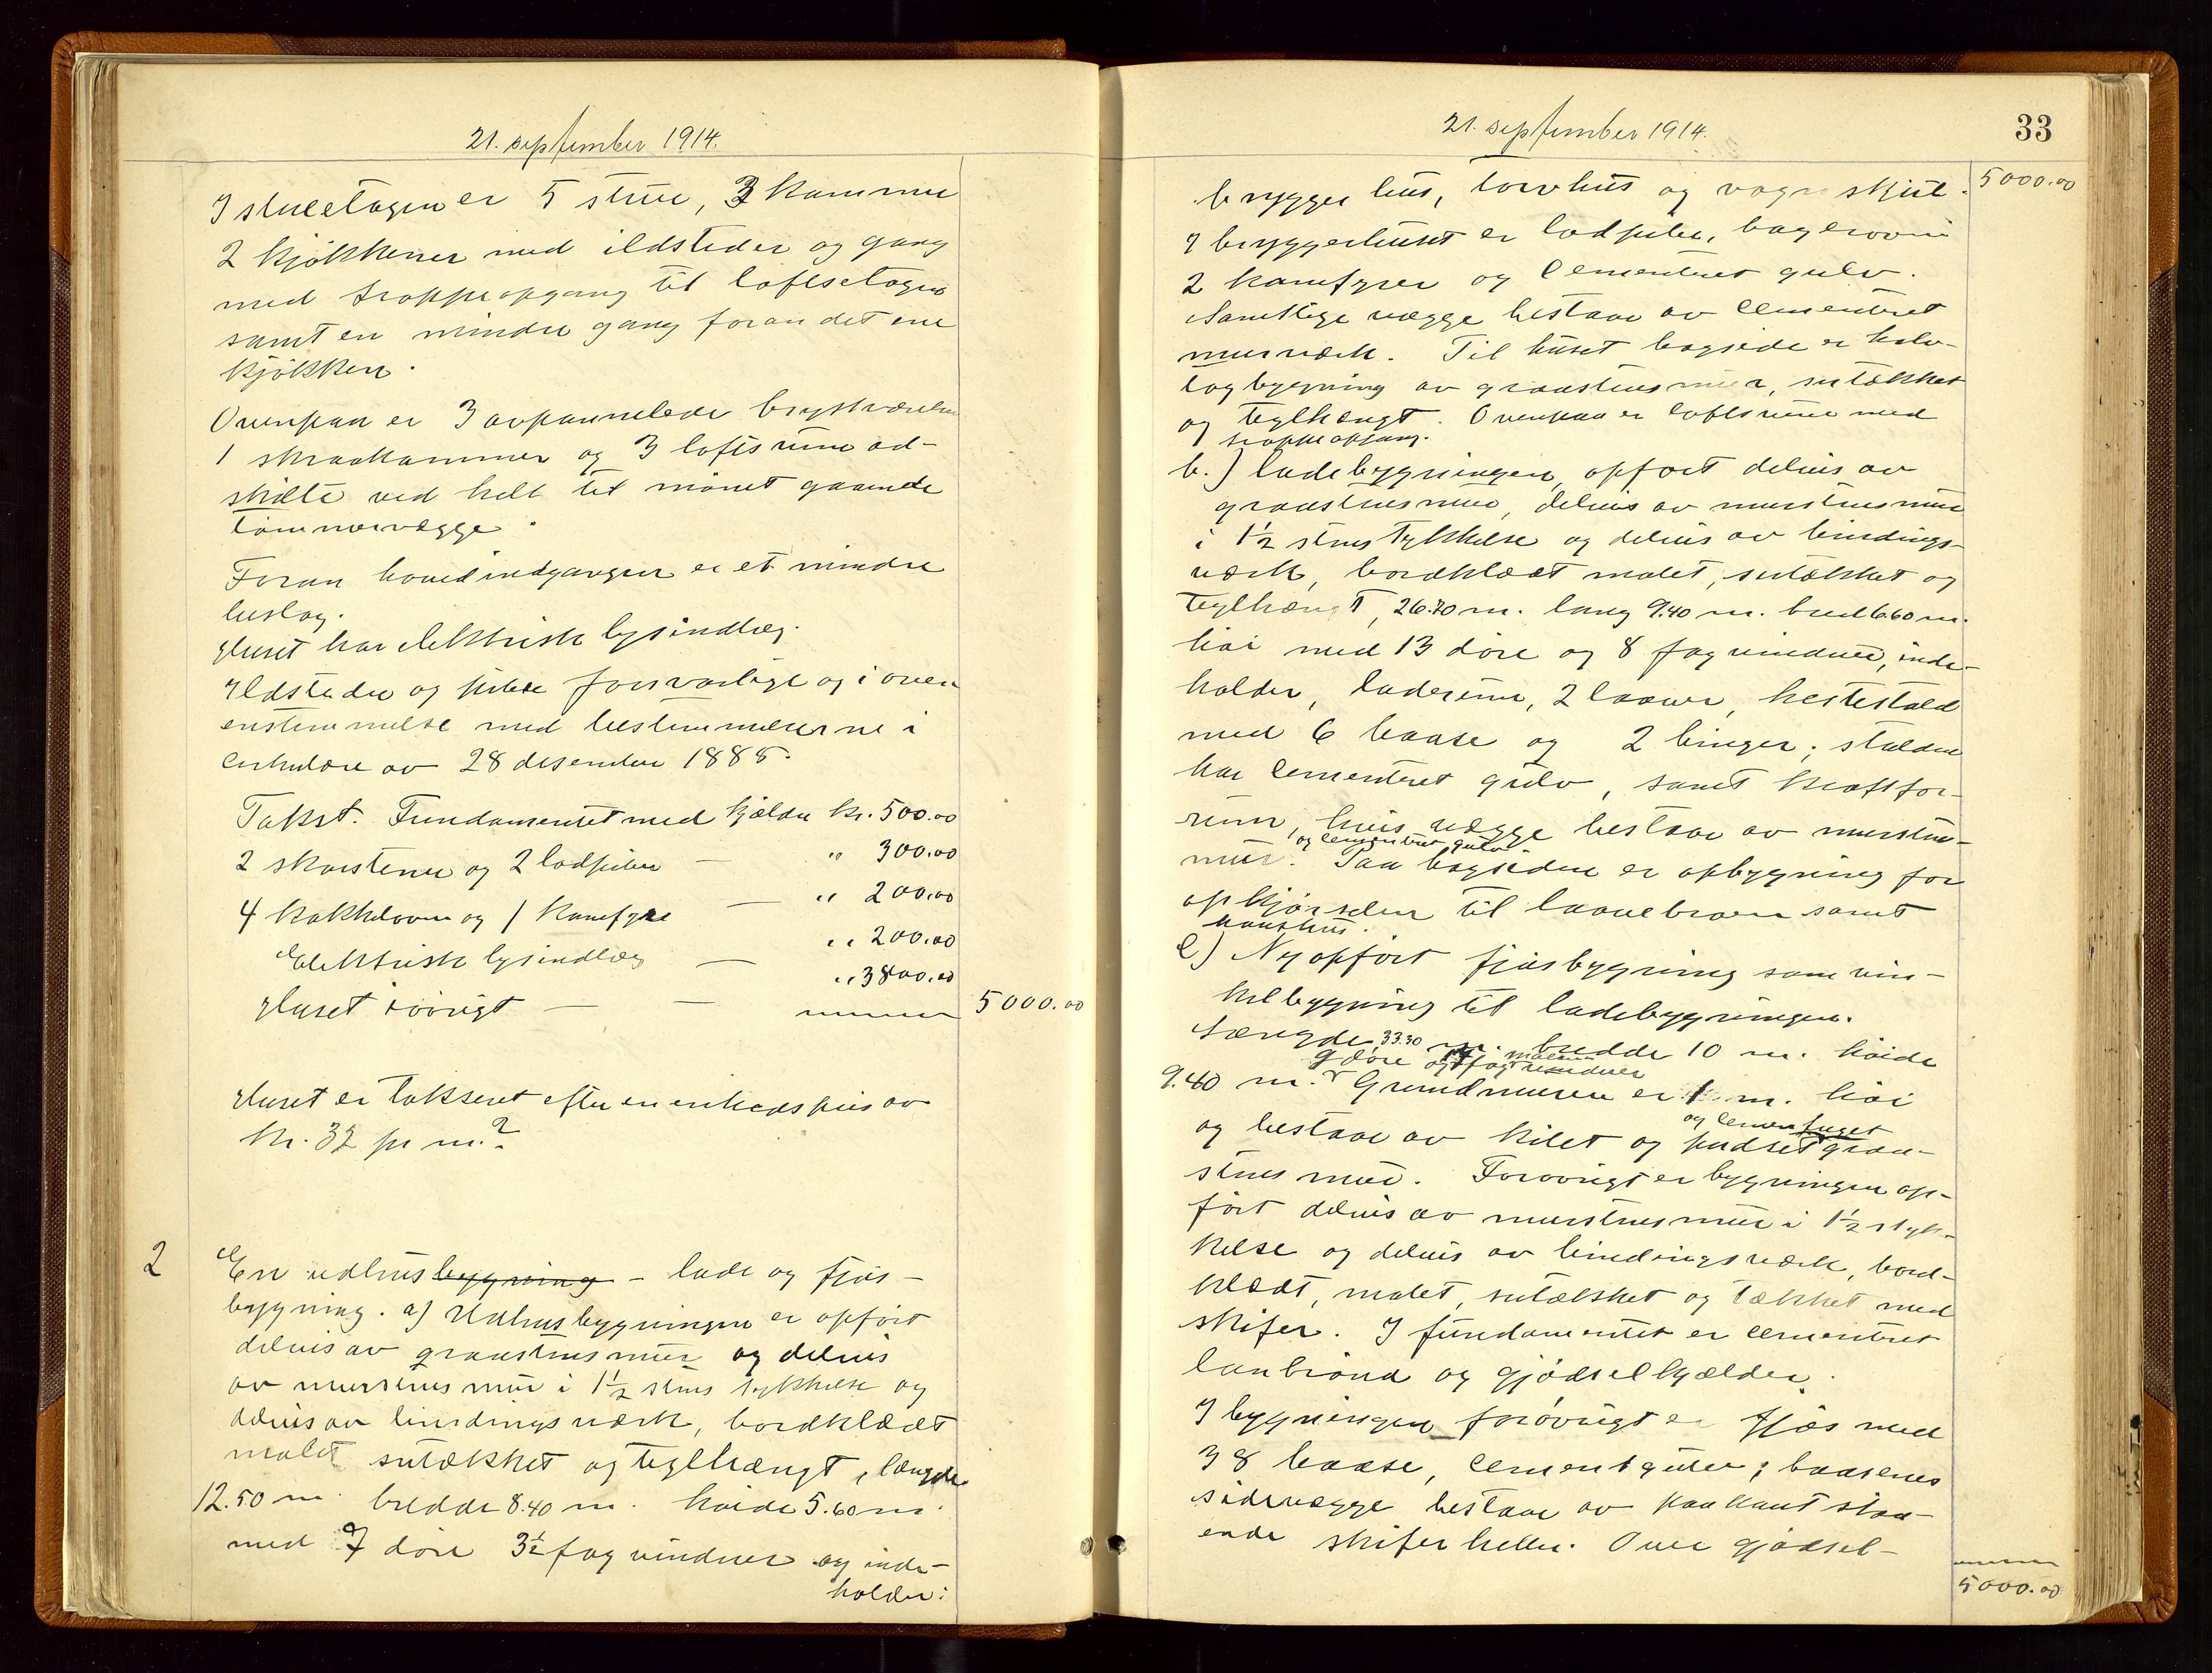 21. september 1914.
I stueetagen er 5 stuer, 3 kammer
2 kjøkkener med ildsteder og gang
med trappeopgang til loftsetagen
samt en mindre gang foran det ene
kjøkken.
Ovenpaa er 3 avpannelede brystværelser
1 skraakammer og 3 loftsrum ad-
skilte ved helt til mønet gaaende
tømmervægge.
Foran hovedindgangen er et mindre
bislag.
Huset har elektrisk lysindlæg.
Ildsteder og piber forsvarlige og i over
enstemmelse med bestemmelserne i
cirkulære av 28 desember 1885.
Takst. Fundamentet med kjælder kr. 500.00
2 skorstener og 2 lodpiber — " 300.00
4 kakkelovne og 1 komfyre — " 200.00
Elektrisk lysindlæg — " 200.00
Huset iøvrigt — — " 3800.00
5000.00
Huset er takseret efter en enhedspris av
kr. 32 pr m.²
2 En udhusbygning – lade og fjøs-
bygning. a) Udhusbygningen er opført
delvis av graastensmur og delvis
av murstensmur i 1½ stens tykkelse og
delvis av bindingsverk, bordklædt
malet sutækket og teglhængt, længde
12.50 m. bredde 8.40 m. høide 5.60 m.
med 7 døre 3½ fag vinduer og inde-
holder:
21. september 1914.
33
bryggerhus, torvhus og vognskjul. 5000.00
I bryggerhuset er lodpibe, bagerovn
2 komfyrer og cementeret gulv.
Samtlige vægge bestaar av cementeret
murverk. Til huset bagside er halv-
tagbygning av graastensmur, sutækket
og teglhængt. Ovenpaa er loftsrum med
trappeopgang.
b.) Ladebygningen, opført delvis av
graastensmur, delvis av murstensmur
i 1½ stens tykkelse og delvis av bindings-
verk, bordklædt malet, sutækket og
teglhængt, 26.70 m. lang 9.40 m. bred 6.60 m.
høi med 13 døre og 8 fag vinduer, inde-
holder, laderum, 2 laaver, hestestald
med 6 baase og 2 binger; stalden
har cementeret gulv, samt kraftfor-
rum, hvis vægge bestaar av mursten-
og cementeret gulv
mur. Paa bagsiden er opbygning for
opkjørselen til laavebroen samt
c) Nyopført fjøsbygning som vin-
kelbygning til ladebygningen.
Længde 33.30 m. bredde 10 m. høide
9 døre og 17 fag vinduer
9.40 m. Grundmuren er 1 m. høi
og cementfuget
og bestaar av kilet og pudset graa-
stensmur. Forøvrigt er bygningen op-
ført delvis av murstensmur i 1½ s tyk-
kelse og delvis av bindingsverk, bord-
klædt, malet, sutækket og tækket med
skifer. I fundamentet er cementeret
lanbrønd og gjødselkjælder.
I bygningen forøvrigt er fjøs med
38 baase, cementgulv; baasenes
sidevægge bestaar av paa kant staa-
ende skiferheller. Over gjødsel-
5000.00